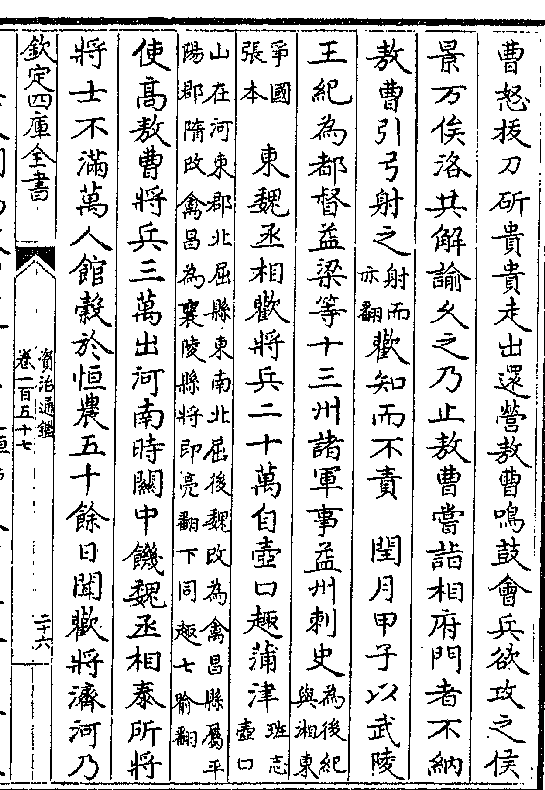 曹怒抜刀斫貴貴走出還營敖曹鳴鼓會兵欲攻之侯
景万俟洛共解諭乆之乃止敖曹嘗詣相府門者不納
敖曹引弓射之射而亦翻歡知而不責 閏月甲子以武陵
王紀為都督益梁等十三州諸軍事益州刺史為後紀與湘東
爭國張本 東魏丞相歡將兵二十萬自壺口趣蒲津班志壺口
山在河東郡北屈縣東南北屈後魏改為禽昌縣屬平
陽郡隋改禽昌為襄陵縣將即亮翻下同趣七喻翻
使高敖曹將兵三萬出河南時關中饑魏丞相泰所將
將士不滿萬人館穀於恒農五十餘日聞歡將濟河乃
欽定四庫全書
資治通鑑
卷一百五十七
二十六